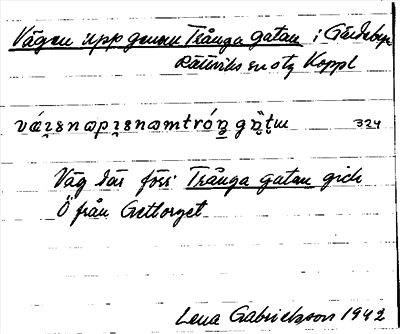 Vägen upp genom Trånga gatan i Gärdebyn
Rättviks sn o tg Koppl
324
Väg där förr Trånga gatan gick
Ö från Gettorget
Lena Gabrielsson 1942